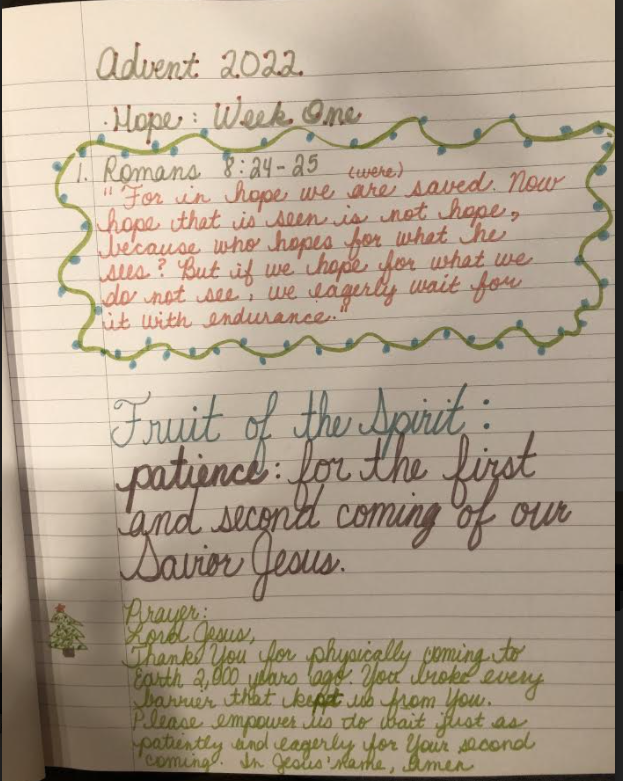 Advent 2022
· Hope: Week One
1. Romans 8:24-25 (were)
"For in hope we are saved. Now
hope that is seen is not hope,
because who hopes for what he
sees? But if we hope for what we
do not see, we eagerly wait for
it with endurance."
Fruit of the Spirit:
patience: for the first
and second coming of our
Savior Jesus.
Prayer:
Lord Jesus,
Thank You for physically coming to
Earth 2,000 years ago. You broke every
barrier that kept us from You.
Please empower us to wait just as
patiently and eagerly for Your second
coming. In Jesus' name, Amen